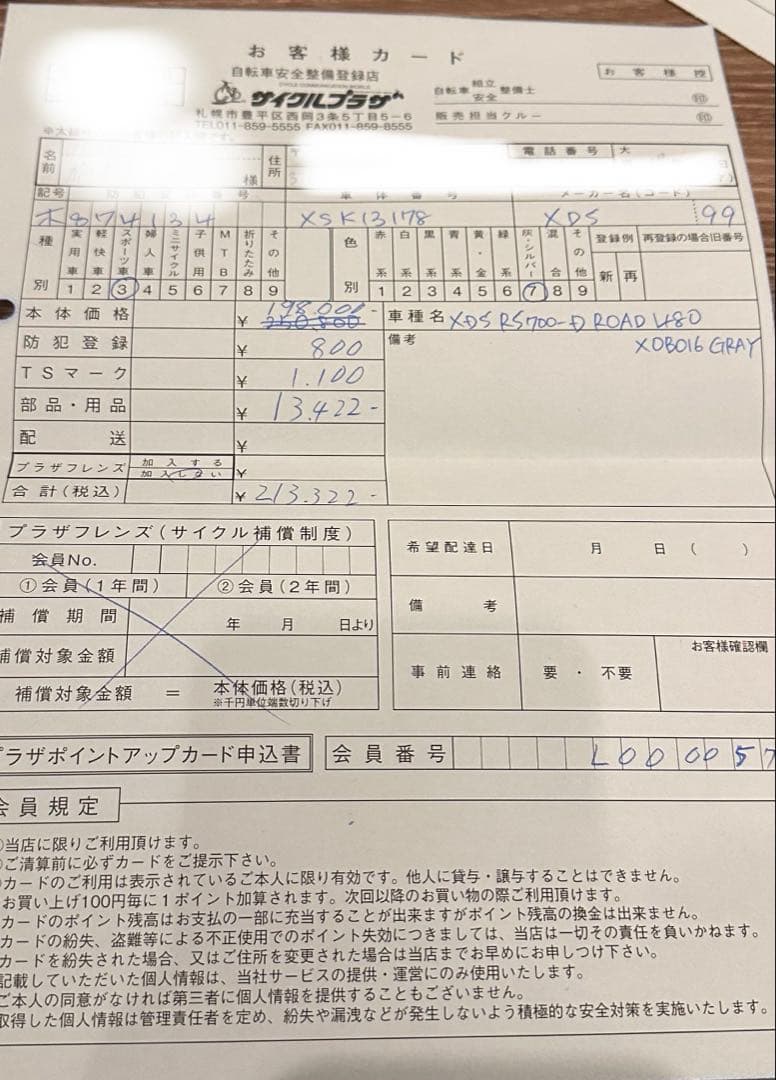 お客様カード
自転車安全整備登録店
お客様控
CYCLE COMMUNICATION WORLD
サイクルプラザ
自転車 組立 安全 整備士 印
札幌市豊平区西岡3条5丁目5-6
販売担当クルー 印
TEL011-859-5555 FAX011-859-8555
名前 様 住所 電話番号 大
記号 車体番号 メーカー名(コード)
木 874134 XSK13178 XDS 99
種別 実用車1 軽快車2 スポーツ車3 婦人車4 ミニサイクル5 子供用6 MTB7 折りたたみ8 その他9
色別 赤系1 白系2 黒系3 青系4 黄・金5 緑系6 灰・シルバー7 混合8 その他9
登録例 新 再 再登録の場合旧番号
本体価格 ¥ 250,800 198,001-
車種名 XDS RS700-D ROAD 480
防犯登録 ¥ 800
備考 XOB016 GRAY
TSマーク ¥ 1.100
部品・用品 ¥ 13.422-
配送 ¥
プラザフレンズ 加入する 加入しない ¥
合計(税込) ¥ 213.322-
プラザフレンズ(サイクル補償制度)
会員No.
①会員(1年間) ②会員(2年間)
補償期間 年 月 日より
補償対象金額
補償対象金額 = 本体価格(税込)
※千円単位端数切り下げ
希望配達日 月 日 ( )
備考
事前連絡 要・不要 お客様確認欄
プラザポイントアップカード申込書 会員番号 L000057
会員規定
当店に限りご利用頂けます。
ご清算前に必ずカードをご提示下さい。
カードのご利用は表示されているご本人に限り有効です。他人に貸与・譲与することはできません。
お買い上げ100円毎に1ポイント加算されます。次回以降のお買い物の際ご利用頂けます。
カードのポイント残高はお支払の一部に充当することが出来ますがポイント残高の換金は出来ません。
カードの紛失、盗難等による不正使用でのポイント失効につきましては、当店は一切その責任を負いかねます。
カードを紛失された場合、又はご住所を変更された場合は当店までお早めにお申しつけ下さい。
記載していただいた個人情報は、当社サービスの提供・運営にのみ使用いたします。
ご本人の同意がなければ第三者に個人情報を提供することもございません。
取得した個人情報は管理責任者を定め、紛失や漏洩などが発生しないよう積極的な安全対策を実施いたします。